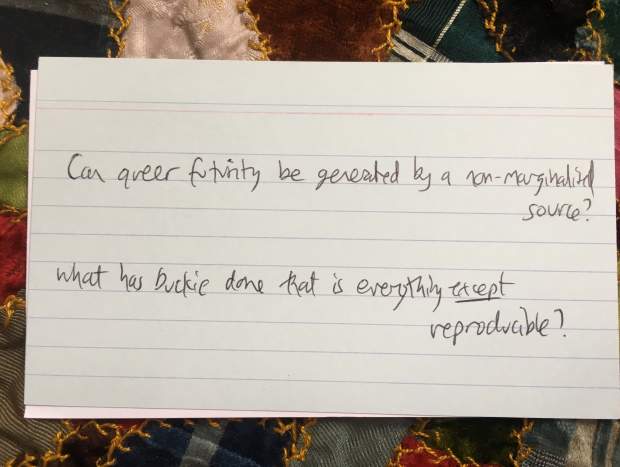 Can queer futurity be generated by a non-marginalized
source?
What has Buckie done that is everything except
reproducible?